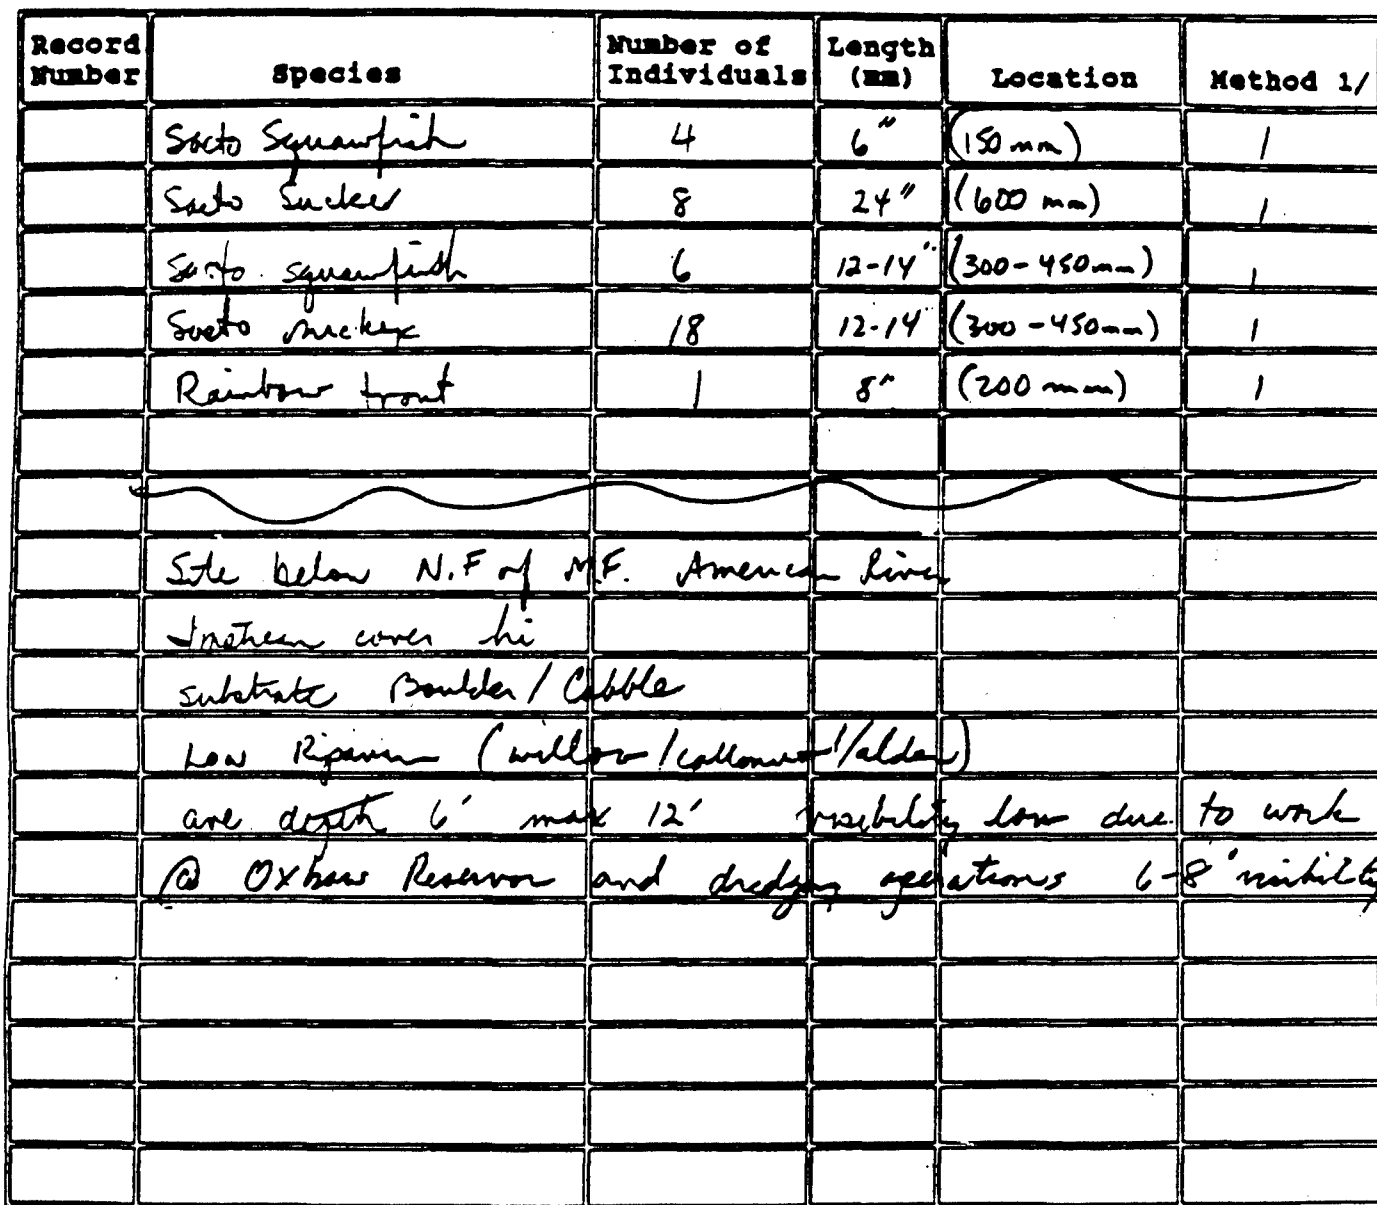 Record Number Species Number of Individuals Length (mm) Location Method 1/
Sacto Squawfish 4 6" (150 mm) 1
Sacto Sucker 8 24" (600 mm) 1
Sacto squawfish 6 12-14" (300-450mm) 1
Sacto sucker 18 12-14" (300-450mm) 1
Rainbow trout 1 8" (200 mm) 1
Site below N.F of M.F. American River
Instream cover hi
substrate Boulder/Cobble
Low Riparian (willow/cottonwood/alder)
ave depth 6' max 12' visibility low due to work
@ Oxbow Reservor and dredging operations 6-8' visibility